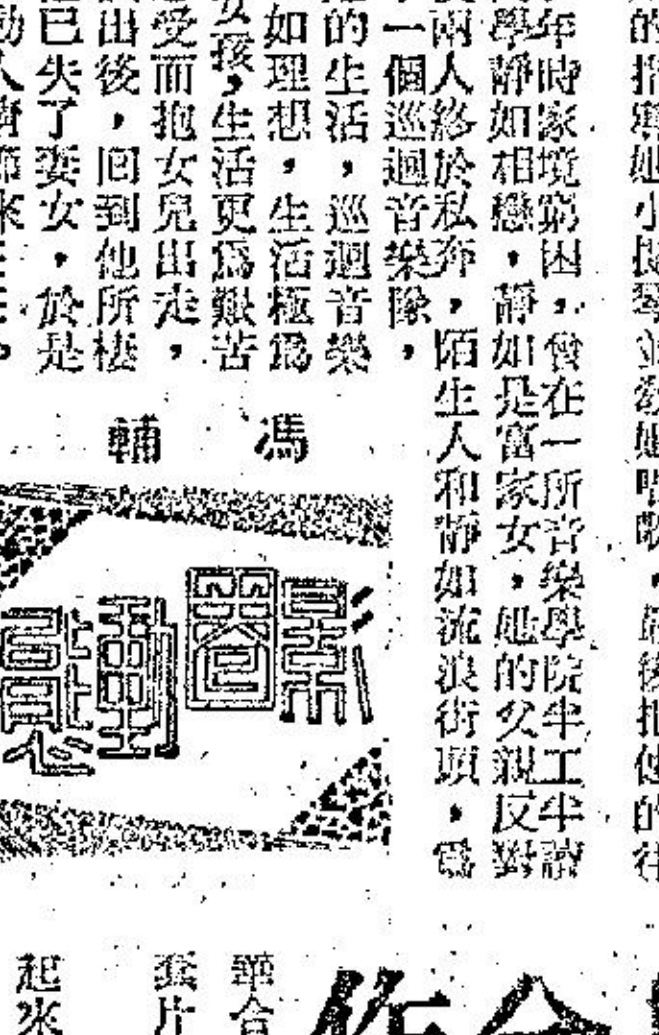 的指導她小提琴並教她唱歌，最後把他的往
年時家境窮困，曾在一所音樂學院半工半讀
學靜如相戀，靜如是富家女，她的父親反對
兩人終於私奔，陌生人和靜如流浪街頭，爲
一個巡迴音樂隊，
的生活，巡迴音樂
如理想，生活極爲
女孩，生活更爲艱苦
受而抱女兒出走，
出後，回到他所棲
已失了妻女，於是
馮輔
影圈動態
合作
華合
套片
起來